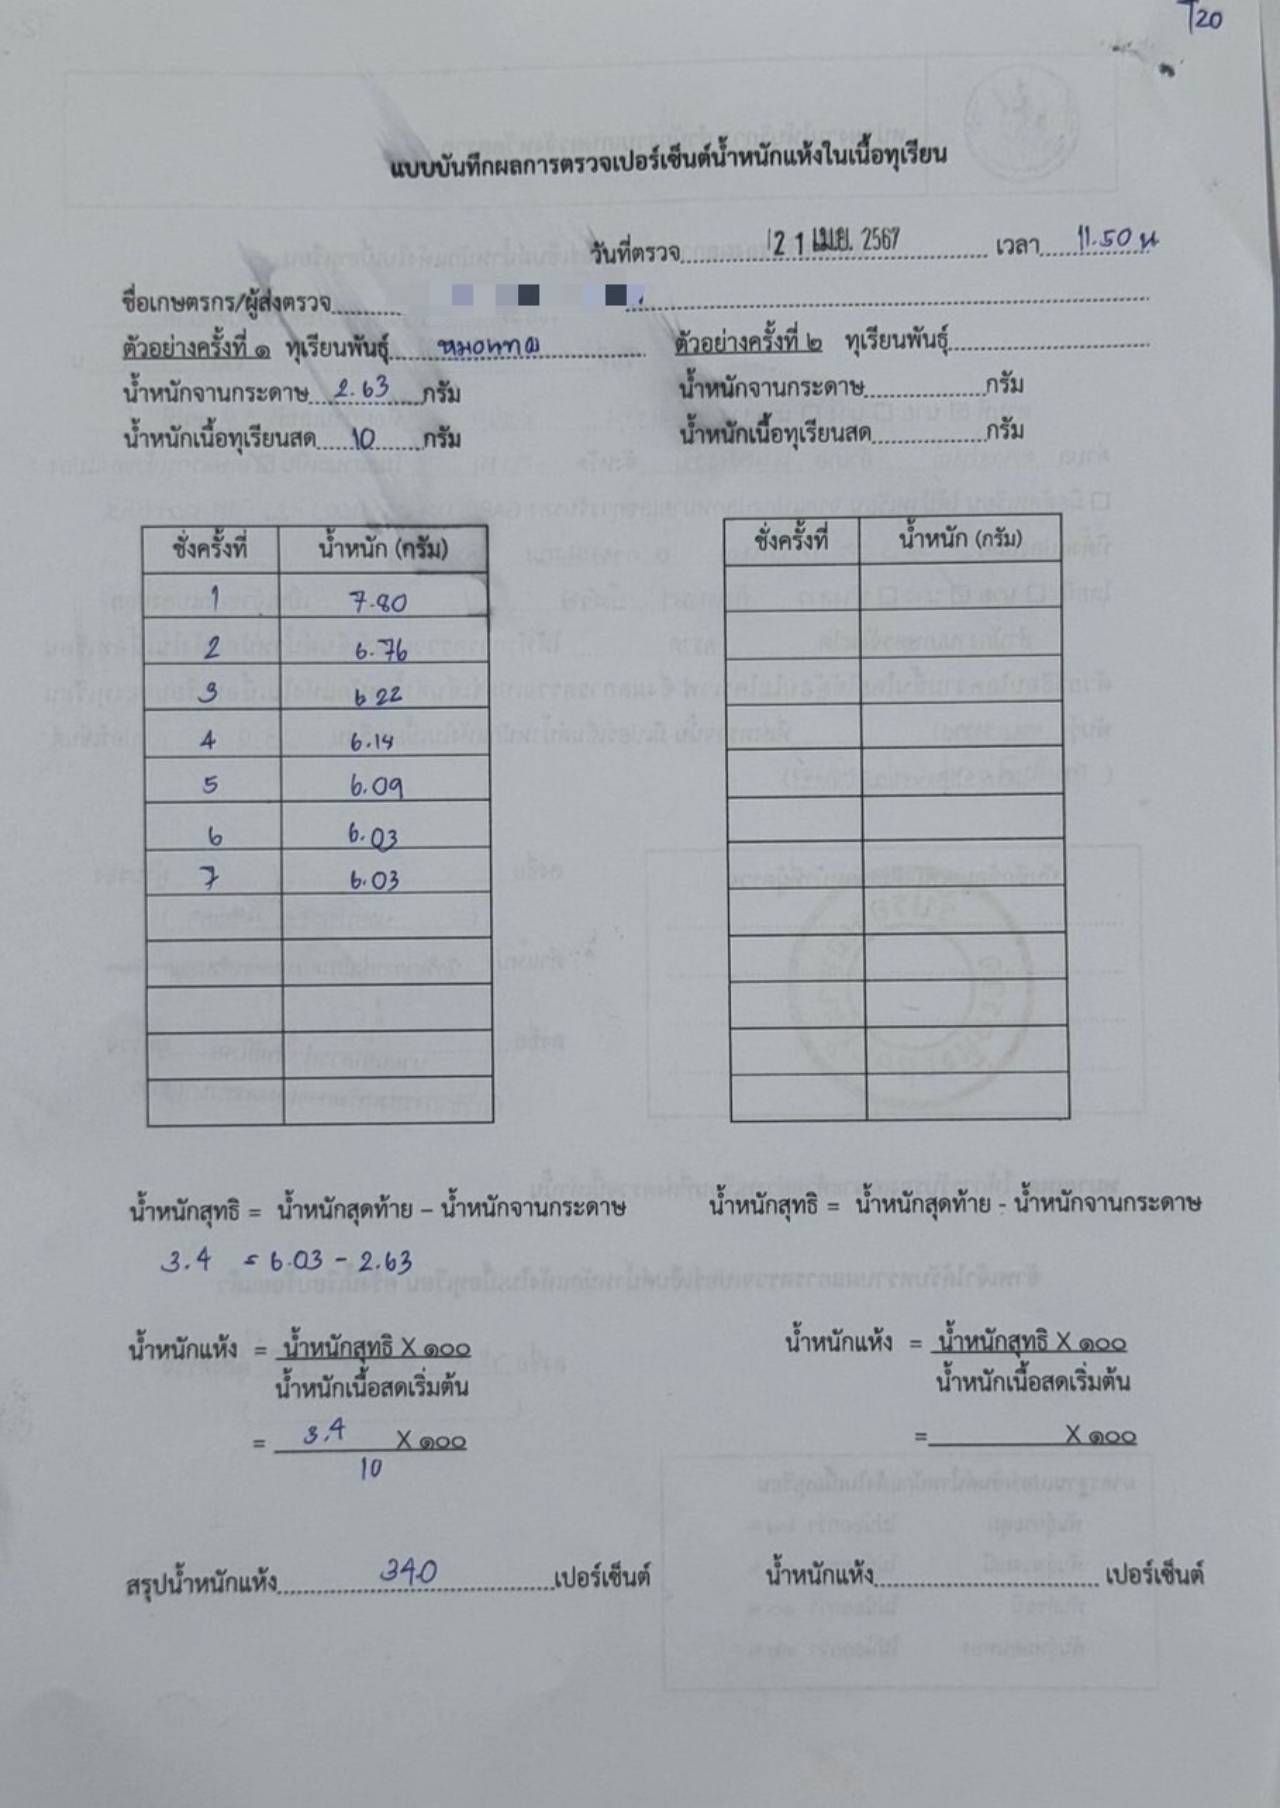 T20
แบบบันทึกผลการตรวจเปอร์เซ็นต์น้ำหนักแห้งในเนื้อทุเรียน
วันที่ตรวจ 21 เม.ย. 2567 เวลา 11.50 น
ชื่อเกษตรกร/ผู้ส่งตรวจ
ตัวอย่างครั้งที่ ๑ ทุเรียนพันธุ์ หมอนทอง ตัวอย่างครั้งที่ ๒ ทุเรียนพันธุ์
น้ำหนักจานกระดาษ 2.63 กรัม น้ำหนักจานกระดาษ กรัม
น้ำหนักเนื้อทุเรียนสด 10 กรัม น้ำหนักเนื้อทุเรียนสด กรัม
ชั่งครั้งที่ น้ำหนัก (กรัม) ชั่งครั้งที่ น้ำหนัก (กรัม)
1 7.80
2 6.76
3 6.22
4 6.14
5 6.09
6 6.03
7 6.03
น้ำหนักสุทธิ = น้ำหนักสุดท้าย – น้ำหนักจานกระดาษ น้ำหนักสุทธิ = น้ำหนักสุดท้าย - น้ำหนักจานกระดาษ
3.4 = 6.03 - 2.63
น้ำหนักแห้ง = น้ำหนักสุทธิ X ๑๐๐ น้ำหนักแห้ง = น้ำหนักสุทธิ X ๑๐๐
น้ำหนักเนื้อสดเริ่มต้น น้ำหนักเนื้อสดเริ่มต้น
= 3.4 X ๑๐๐ = X ๑๐๐
10
สรุปน้ำหนักแห้ง 340 เปอร์เซ็นต์ น้ำหนักแห้ง เปอร์เซ็นต์